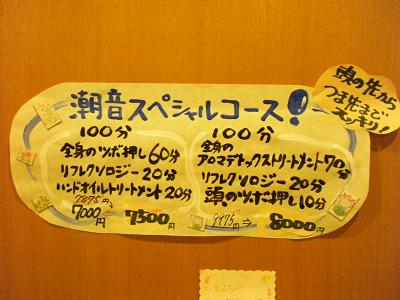 潮音スペシャルコース!
頭の先から
つま先まで
スッキリ!
100分
全身のツボ押し60分
リフレクソロジー20分
ハンドオイルトリートメント20分
7875円
7000円
7500円
100分
全身の
アロマデトックストリートメント70分
リフレクソロジー20分
頭のツボ押し10分
9975円⇒
8000円